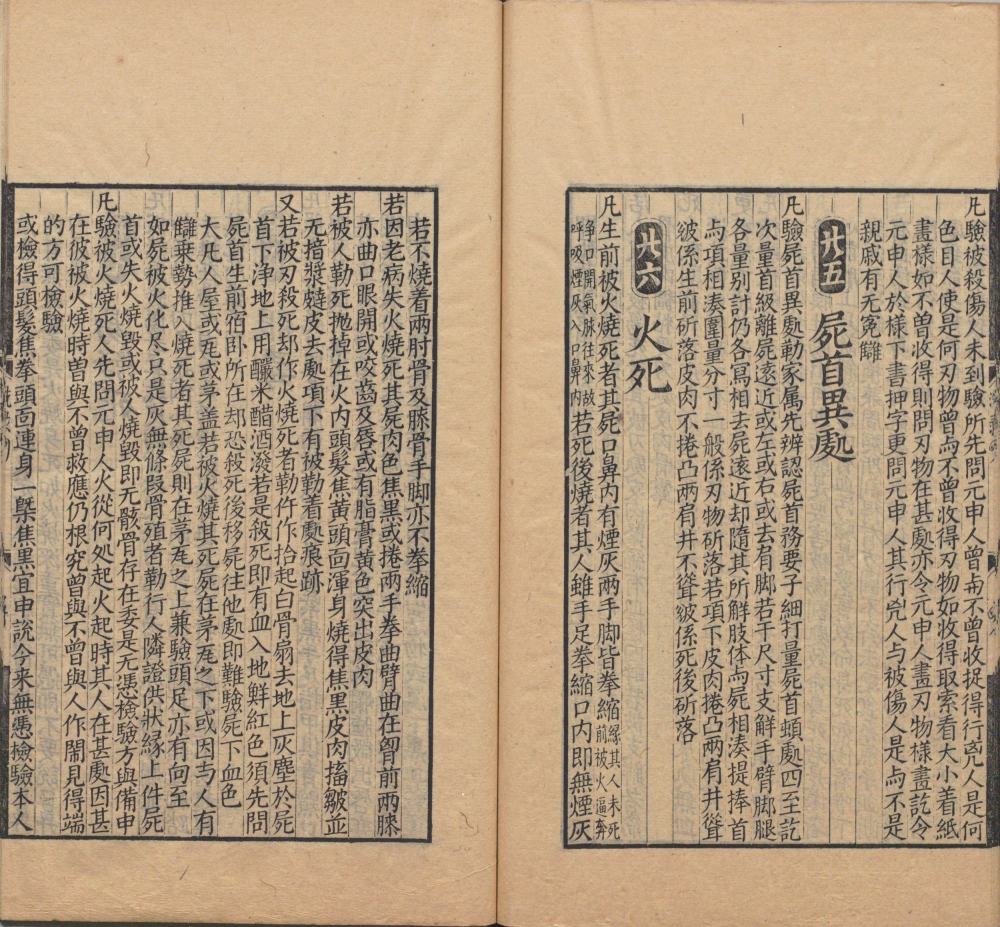 凢驗被殺傷人未到驗所先問元申人曾与不曾收捉得行兇人是何
色目人使是何刃物曾与不曾收得刃物如收得取索看大小着紙
畫樣如不曾收得則問刃物在甚處亦令元申人畫刃物樣畫訖令
元申人於樣下書押字更問元申人其行兇人与被傷人是与不是
親戚有无冤讎
廿五 屍首異處
凢驗屍首異處勒家属先辨認屍首務要子細打量屍首頓處四至訖
次量首級離屍遠近或左或右或去肩脚若干尺寸支解手臂脚腿
各量別計仍各寫相去屍遠近却隨其所解肢体与屍相湊提捧首
与項相湊圍量分寸一般係刃物斫落若項下皮肉捲凸兩肩井聳
皴係生前斫落皮肉不捲凸兩肩井不聳皴係死後斫落
廿六 火死
凢生前被火燒死者其屍口鼻内有煙灰兩手脚皆拳縮緣其人未死前被火逼奔
争口開氣脉往来故呼吸煙灰入口鼻内若死後燒者其人雖手足拳縮口内即無煙灰
若不燒着兩肘骨及膝骨手脚亦不拳縮
若因老病失火燒死其屍肉色焦黑或捲兩手拳曲臂曲在胷前兩膝
亦曲口眼開或咬齒及唇或有脂膏黄色突出皮肉
若被人勒死抛掉在火内頭髮焦黄頭面渾身燒得焦黑皮肉搐皺並
无揞漿䞣皮去處項下有被勒着處痕跡
又若被刃殺死却作火燒死者勒仵作拾起白骨扇去地上灰塵於屍
首下浄地上用釅米醋酒潑若是殺死即有血入地鮮紅色須先問
屍首生前宿卧所在却恐殺死後移屍往他處即難驗屍下血色
大凢人屋或瓦或茅盖若被火燒其死屍在茅瓦之下或因与人有
讎乗勢推入燒死者其死屍則在茅瓦之上兼驗頭足亦有向至
如屍被火化尽只是灰無條段骨殖者勒行人隣證供狀緣上件屍
首或失火燒毀或被人燒毀即无骸骨存在委是无憑檢驗方與備申
凢驗被火燒死人先問元申人火從何処起火起時其人在甚處因甚
在彼被火燒時曾與不曾救應仍根究曾與不曾與人作鬧見得端
的方可檢驗
或檢得頭髮焦拳頭面連身一槩焦黑宜申說今来無憑檢驗本人